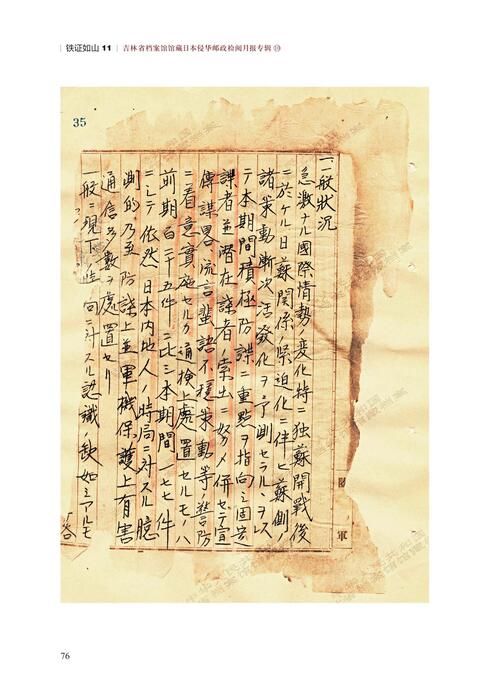 铁证如山 11 | 吉林省档案馆馆藏日本侵华邮政检阅月报专辑 ⑪
35
一、一般状況
急激ナル國際情勢ノ変化特ニ独蘇開戰後
ニ於ケル日蘇関係ノ緊迫化ニ伴ヒ蘇側ノ
諸策動漸次活發化ヲ予測セラルヽヲ以
テ本期間積極防諜ニ重點ヲ指向シ
諜者並潜在諜者ノ索出ニ努メ併セテ宣
傳謀畧流言蜚語不穏策動等ノ警防
ニ着意實施セルカ通検上處置セルモノハ
前期百二十五件ニ比シ本期間一七七件
ニシテ依然日本内地人ノ時局ニ対スル臆
測的乃至防諜上並軍機保護上有害
通信多数ヲ處置セリ
一般ニ現下時局ニ対スル認識ノ缺如ニアルモ
軍
76